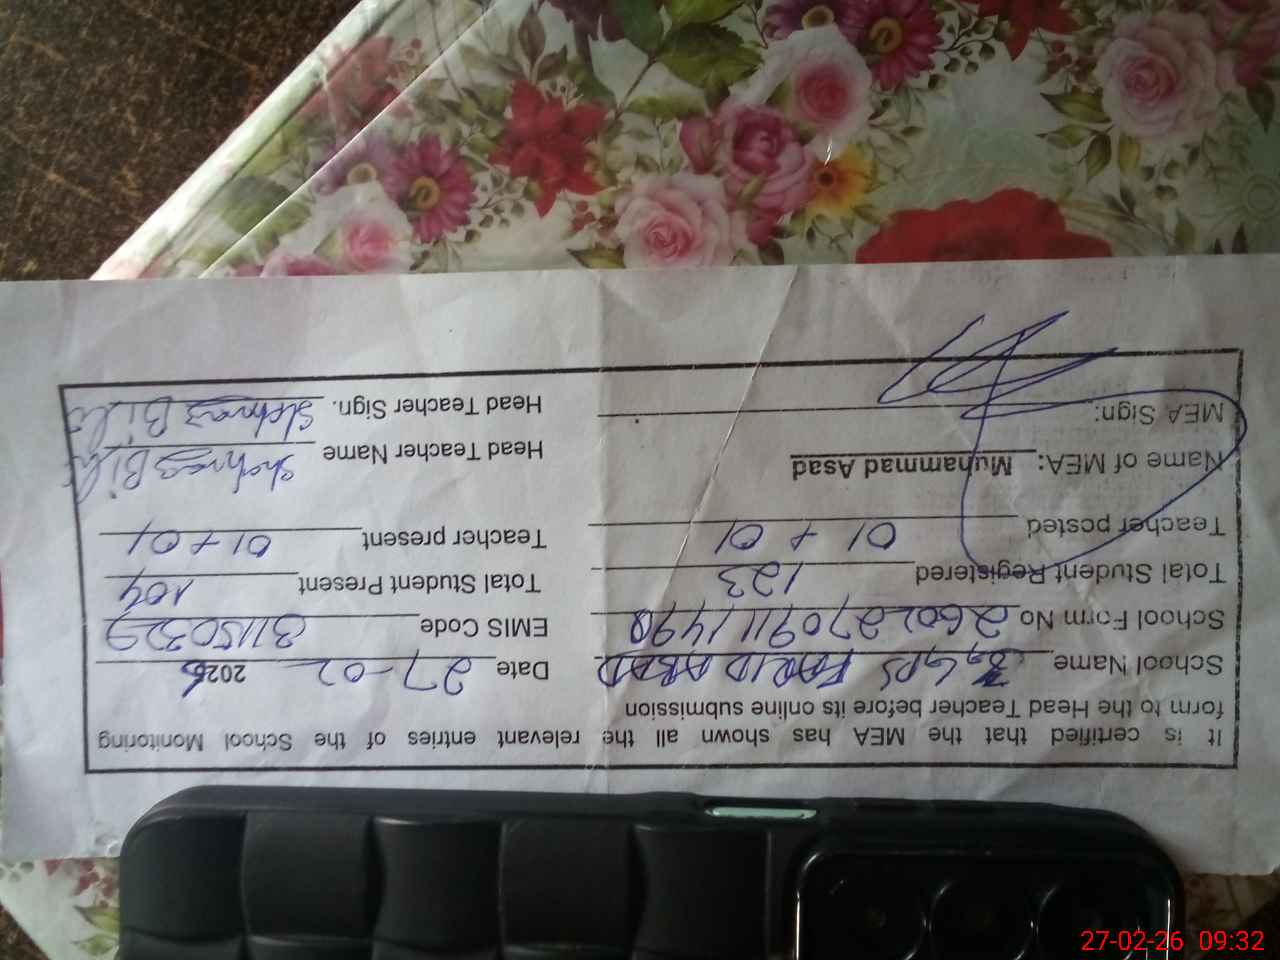 It is certified that the MEA has shown the all the relevant entries of the School Monitoring
form to the Head Teacher before its online submission
School Name GPS FARID ABAD Date 27-02 2026
School Form No EMIS Code 31150329
Total Student Registered 123 Total Student Present 104
Teacher posted 01 + 01 Teacher present 01 + 01
Name of MEA: Muhammad Asad Head Teacher Name
MEA Sign: Head Teacher Sign.
27-02-26 09:32